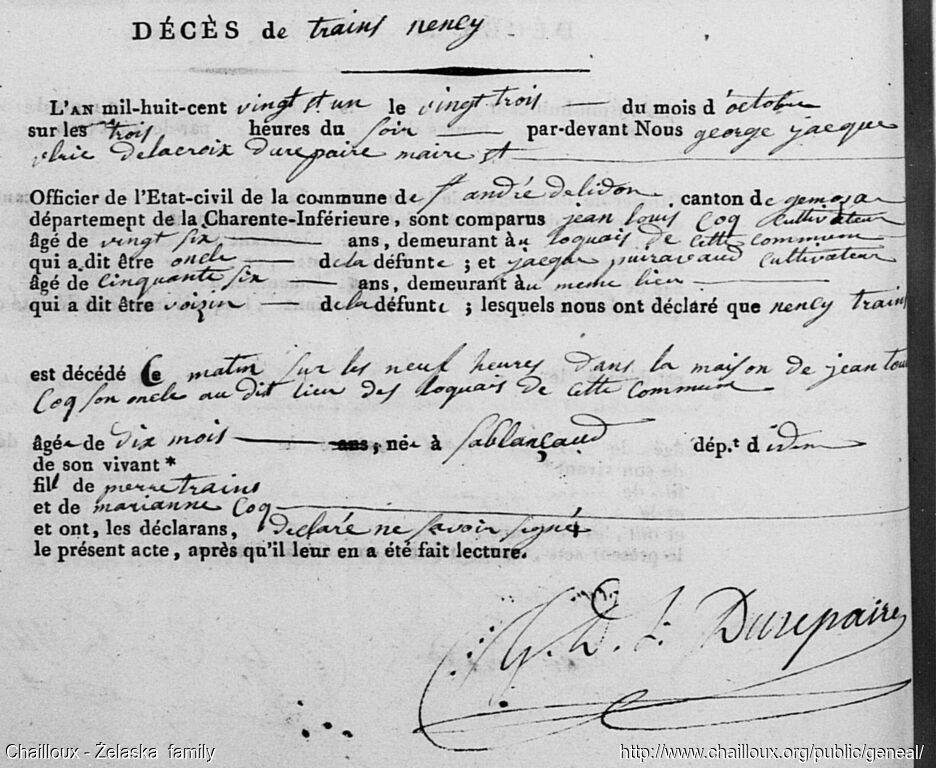 DÉCÈS de trains nency
L'AN mil-huit-cent vingt et un le vingt trois du mois d'octobre
sur les trois heures du soir par-devant Nous george jacque
ulric delacroix durepaire maire et
Officier de l'Etat-civil de la commune de St andré delidon canton de gemosac
département de la Charente-Inférieure, sont comparus jean louis Coq Cultivateur
âgé de vingt six ans, demeurant àu loquais de cette commune
qui a dit être oncle dela défunte ; et jacque puiravaud Cultivateur
âgé de Cinquante six ans, demeurant àu meme lieu
qui a dit être voizin dela défunte ; lesquels nous ont déclaré que nency trains
est décédé Ce matin sur les neuf heures dans la maison de jean loui
Coq son oncle au dit lieu des loquais de cette commune
âgée de dix mois ans, née à sablançaud dép.t d idem
de son vivant*
fill de pierre trains
et de marianne Coq
et ont, les déclarans, declaré ne savoir signé
le présent acte, après qu'il leur en a été fait lecture.
G. D. L. Durepaire
Chailloux - Żelaska family http://www.chailloux.org/public/geneal/